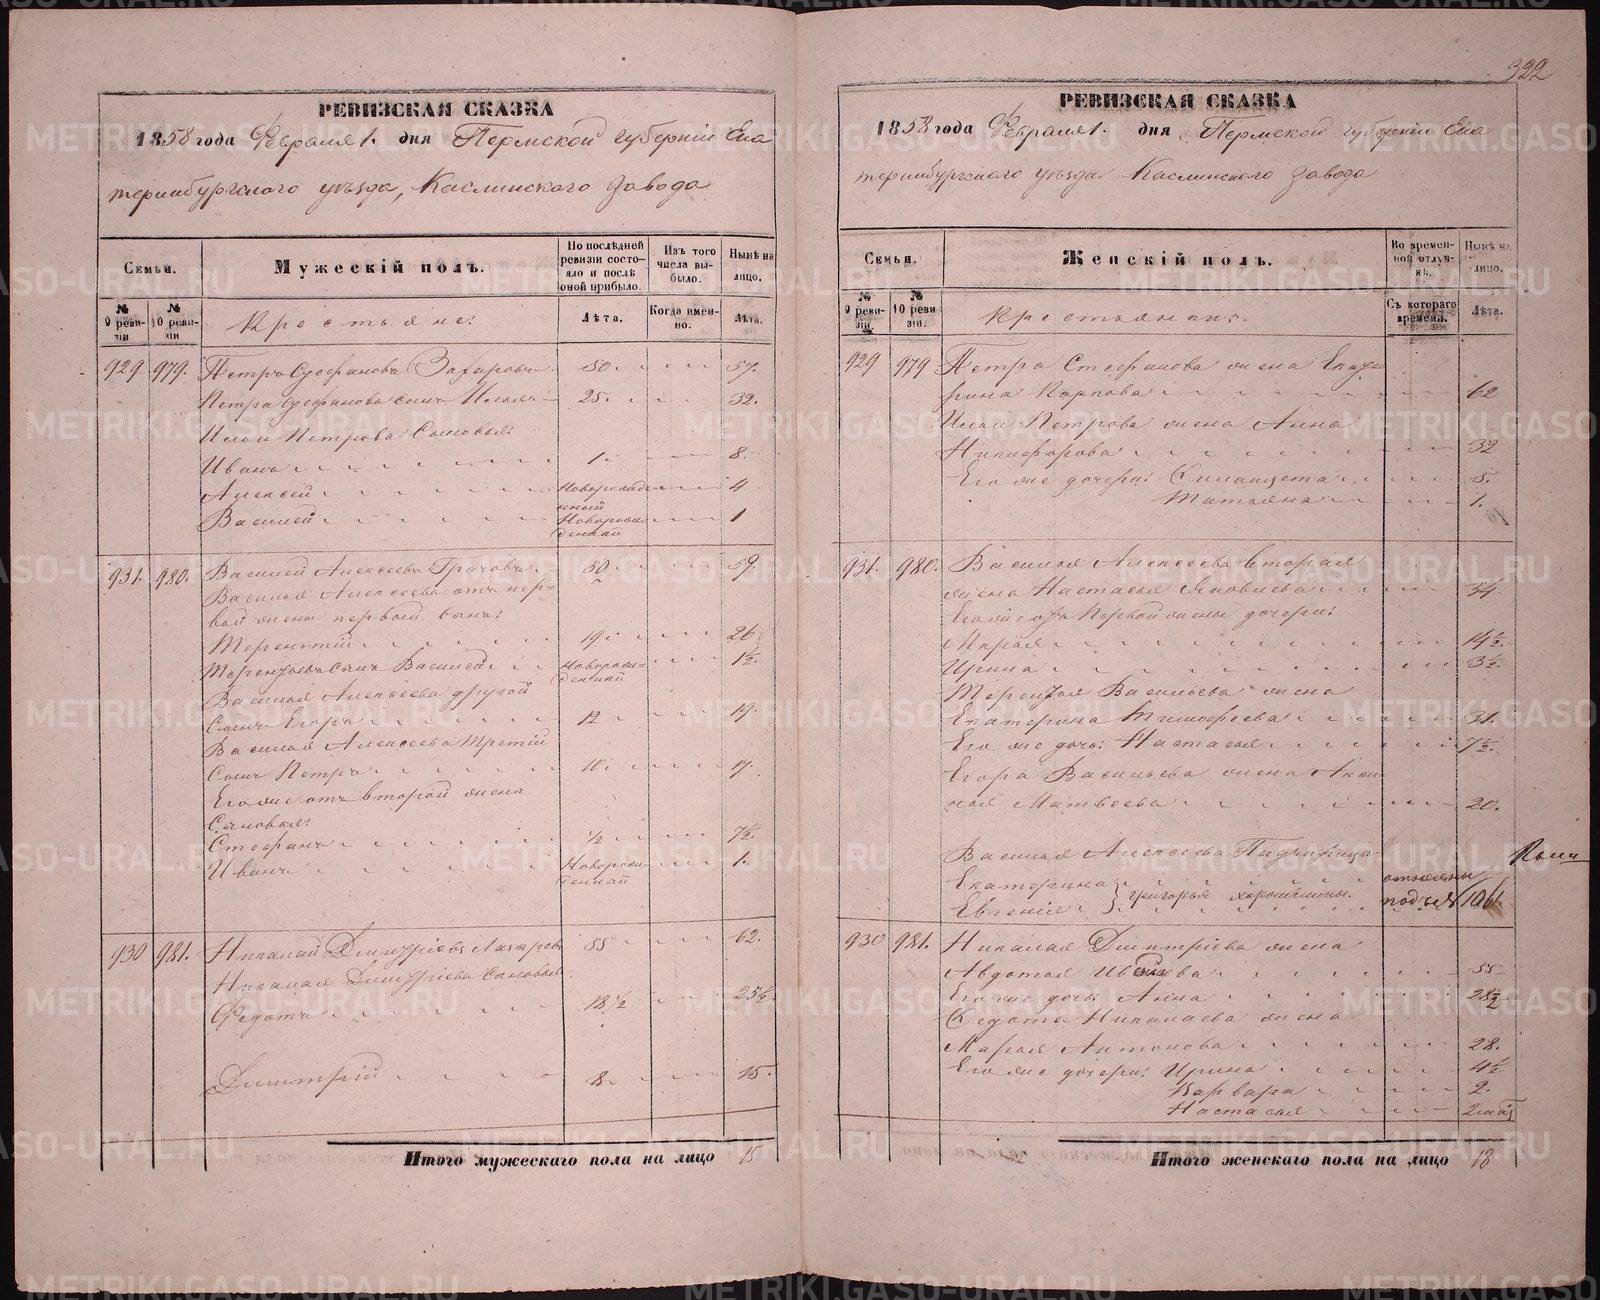 РЕВИЗСКАЯ СКАЗКА
1858 года Февраля 1. дня Пермской губерніи Ека
теринбургскаго уѣзда, Каслинскаго завода
Семьи.
Мужескій полъ.
По послѣдней ревизіи состояло и послѣ оной прибыло.
Изъ того числа выбыло.
Нынѣ на лицо.
№ 9 ревизіи
№ 10 ревизіи
Крестьяне:
Лѣта.
Когда именно.
Лѣта.
929 979. Петръ Стефановъ Захаровъ 50. 57.
Петра Стефанова сынъ Илья 25. 32.
Ильи Петрова сыновья:
Иванъ 1. 8.
Алексей Новорожденный 4
Василей Новорожденный 1
931. 980. Василей Алексеевъ Грачовъ 52 59.
Василья Алексеева отъ пер-
вой жены первый сынъ:
Терентій 19. 26
Терентьевъ сынъ Василей Новорожденный 1½.
Василья Алексеева другой
сынъ Егоръ 12 19.
Василья Алексеева третій
сынъ Петръ 10. 17.
Его же отъ второй жены
сыновья:
Стефанъ ½ 7½.
Иванъ Новорожденный 1.
930 981. Николай Дмитріевъ 55 62.
Николая Дмитріева сыновья:
Федотъ 18½ 25½
Дмитрій 8. 15.
Итого мужескаго пола на лицо 15
322
РЕВИЗСКАЯ СКАЗКА
1858 года Февраля 1. дня Пермской губерніи Ека
теринбургскаго уѣзда Каслинскаго завода
Семьи.
Женскій полъ.
Во временной отлучкѣ.
Нынѣ на лицо.
№ 9 ревизіи.
№ 10 ревизіи.
Крестьянки:
Съ котораго времени.
Лѣта.
929 979 Петра Стефанова жена Екате
рина Карпова 62
Ильи Петрова жена Анна
Никифорова 32
Его же дочери: 5.
Татьяна 1.
931. 980. Василья Алексеева вторая
жена Настасья Яковлева 34
Его же отъ первой жены дочери:
Марья 14½.
Ирина 3½.
Терентья Васильева жена
Екатерина Тимофеева 21.
Его же дочь: Настасья 7½.
Егора Васильева жена
Матвеева 20.
Василья Алексеева Падчерица
Екатерина
Евгенія } Григорья
930 981. Николая Дмитріева жена
Авдотья 55
Его же дочь Анна 28½
Федота Николаева жена
Марья Антонова 28.
Его же дочери: Ирина 4½
Варвара 2.
Настасья
Итого женскаго пола на лицо 18
METRIKI.GASO-URAL.RU